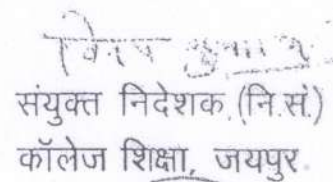 संयुक्त निदेशक (नि.सं.)
कॉलेज शिक्षा, जयपुर